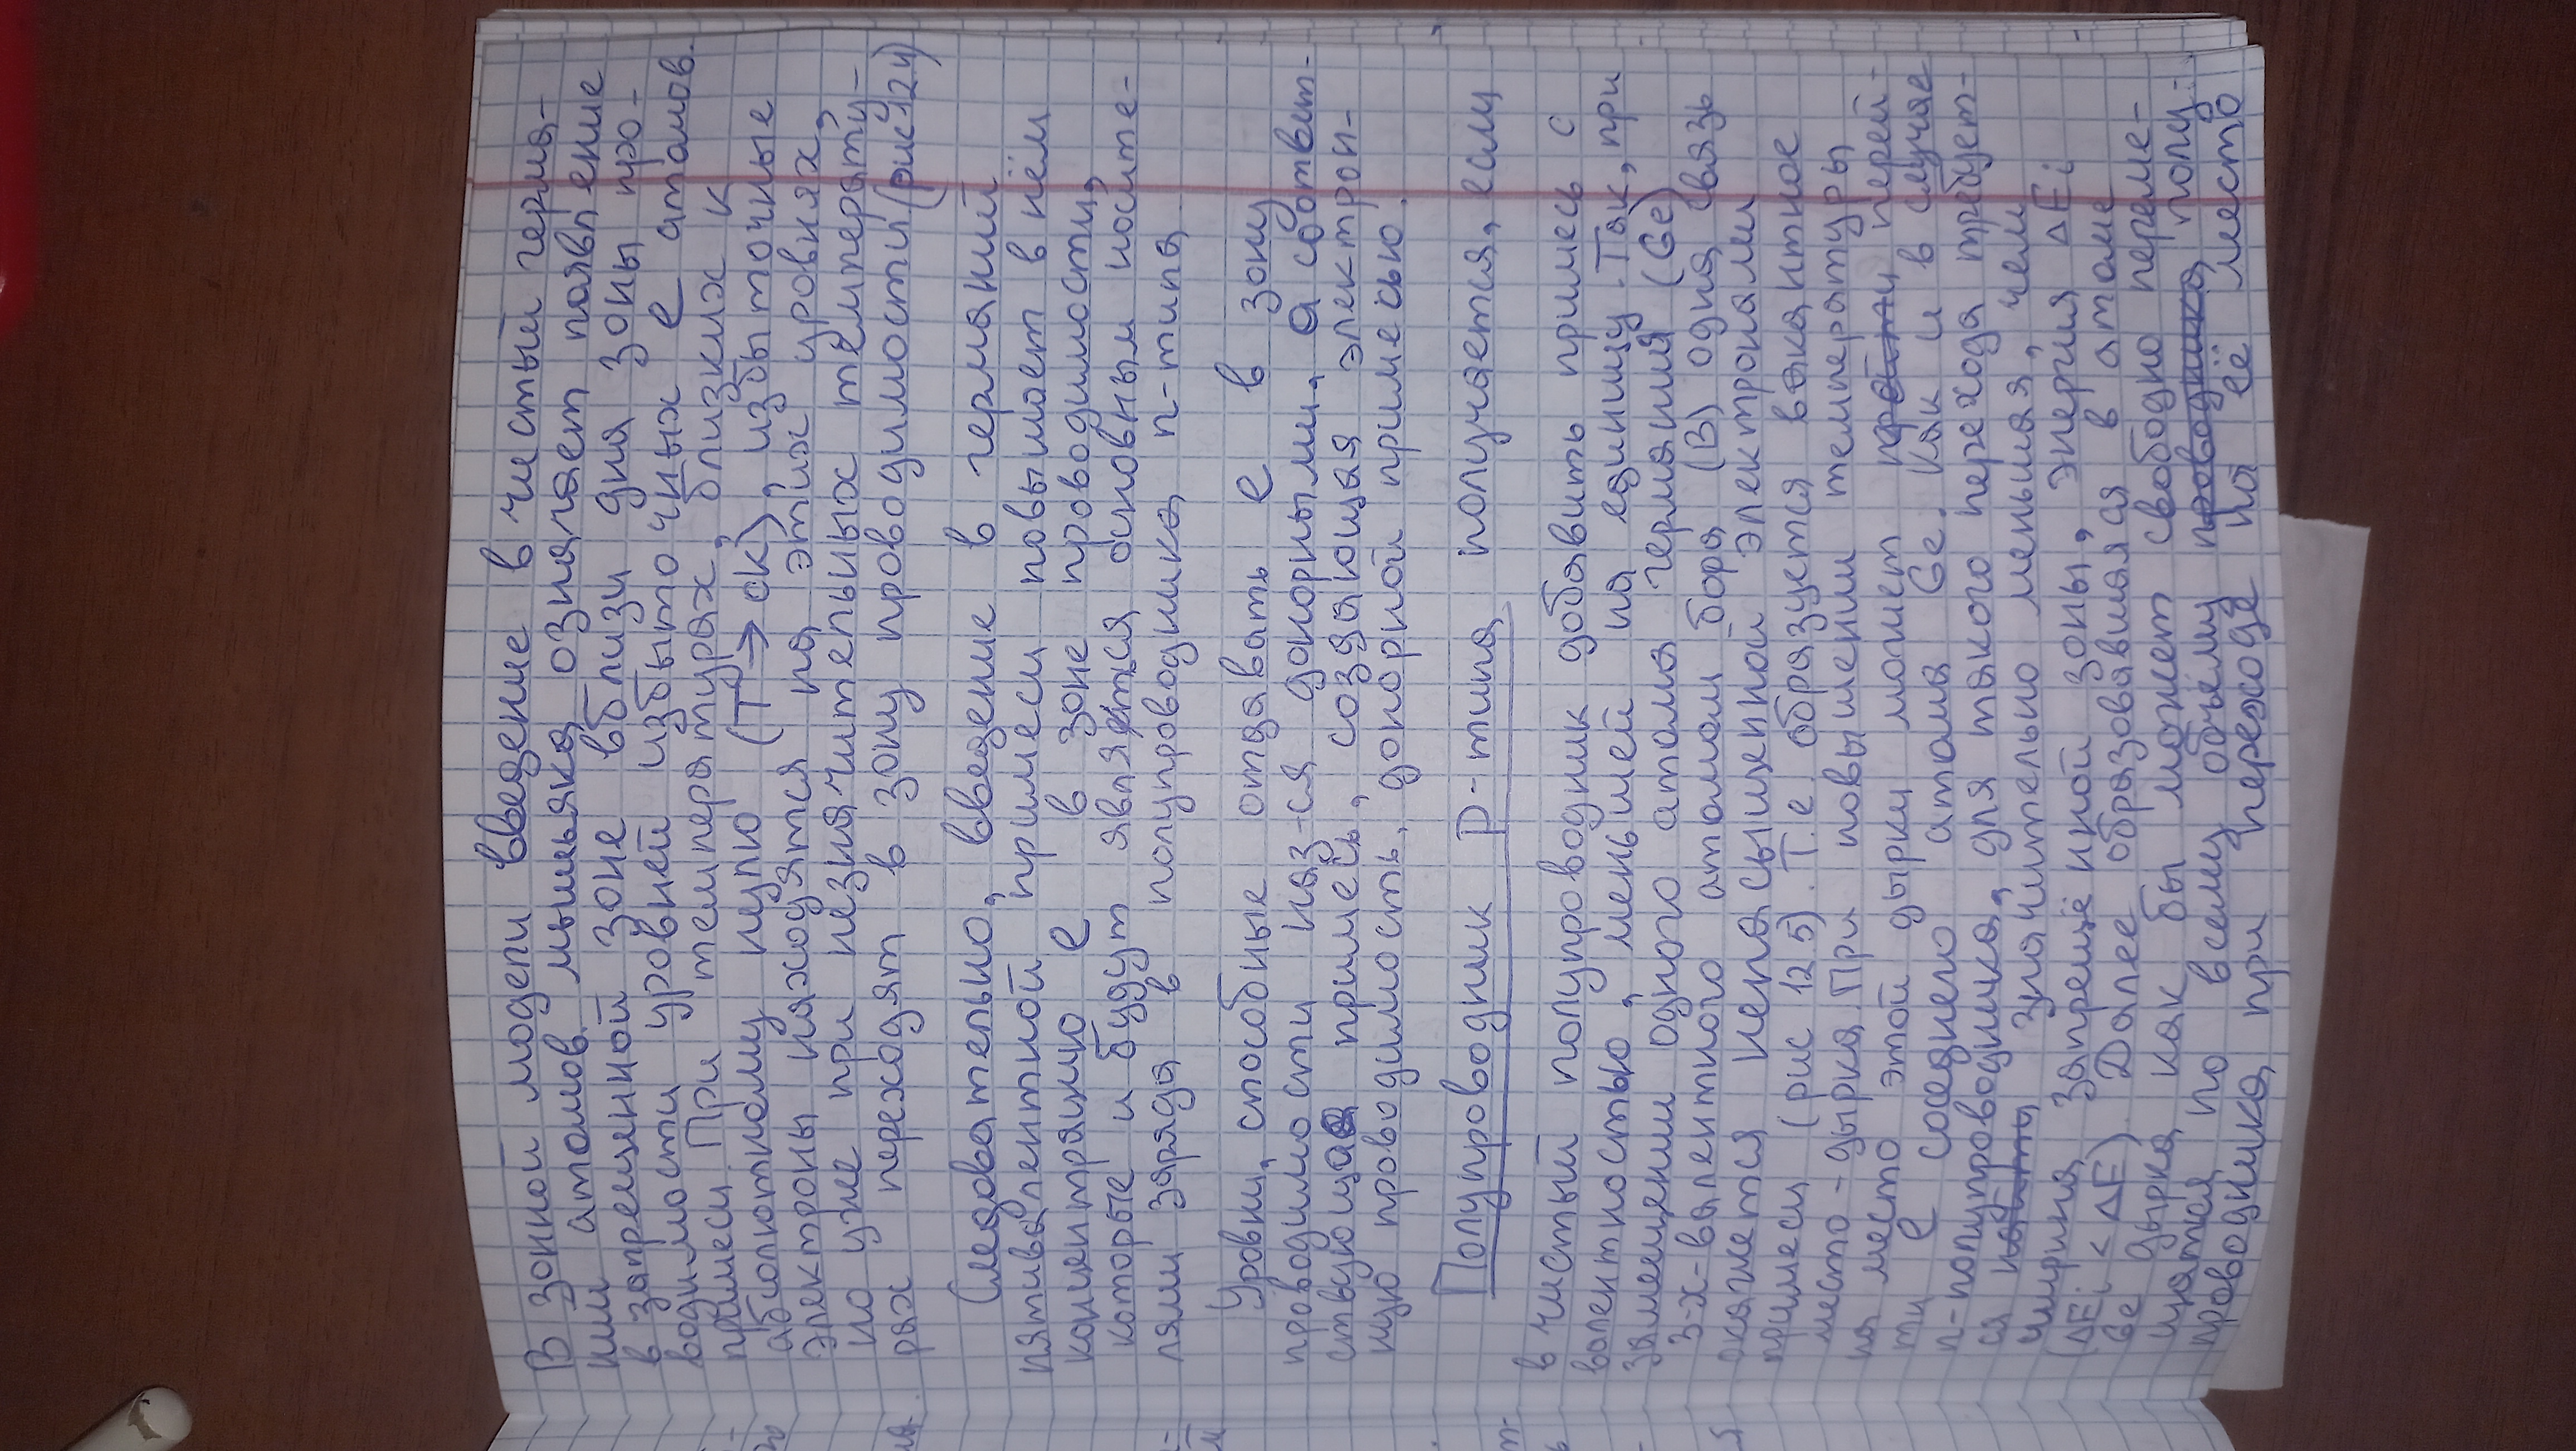 В зонной модели введение в чистый герма-
ний атомов мышьяка означает появление
в запрещенной зоне вблизи дна зоны про-
водимости уровней избыточных е атомов
примеси. При температурах, близких к
абсолютному нулю (T → 0К), избыточные
электроны находятся на этих уровнях,
но уже при незначительных температу-
рах переходят в зону проводимости (рис 12.4)
Следовательно, введение в германий
пятивалентной примеси повышает в нём
концентрацию е в зоне проводимости,
которые и будут являться основным носите-
лями заряда в полупроводника n-типа
Уровни, способные отдавать е в зону
проводимости наз-ся донорными, а соответ-
ствующая примесь, создающая электрон-
ную проводимость, донорной примесью.
Полупроводник p-типа получается, если
в чистый полупроводник добавить примесь с
валентностью, меньшей на единицу. Так, при
замещении одного атома германия (Ge)
3-х-валентного атомом бора (B) одна связь
окажется ненасыщенной электронами
примеси (рис 12.5). Т.е. образуется вакантное
место - дырка. При повышении температуры
на место этой дырки может перей-
ти е соседнего атома Ge. Как и в случае
n-полупроводника, для такого перехода требует-
ся значительно меньшая, чем
ширина запрещённой зоны, энергия ΔEi
(ΔEi < ΔE). Далее образовавшаяся в атоме
Ge дырка как бы может свободно переме-
щатся по всему объёму полу-
проводника при переходе на её место